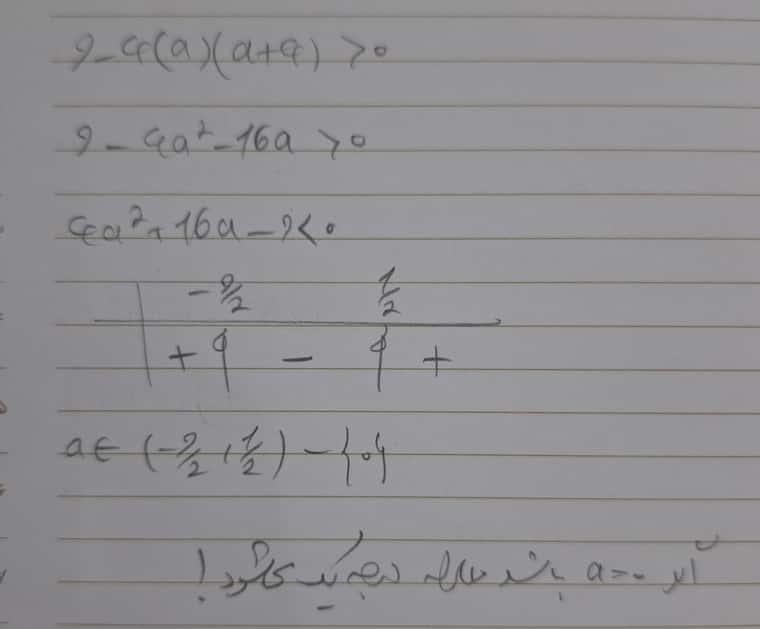 9 - 4(a)(a+4) > 0
9 - 4a² - 16a > 0
4a² + 16a - 9 < 0
-9/2 1/2
+ - +
a ∈ (-9/2 , 1/2) - {0}
اگر a=0 باشد معادله درجه یک می‌شود!